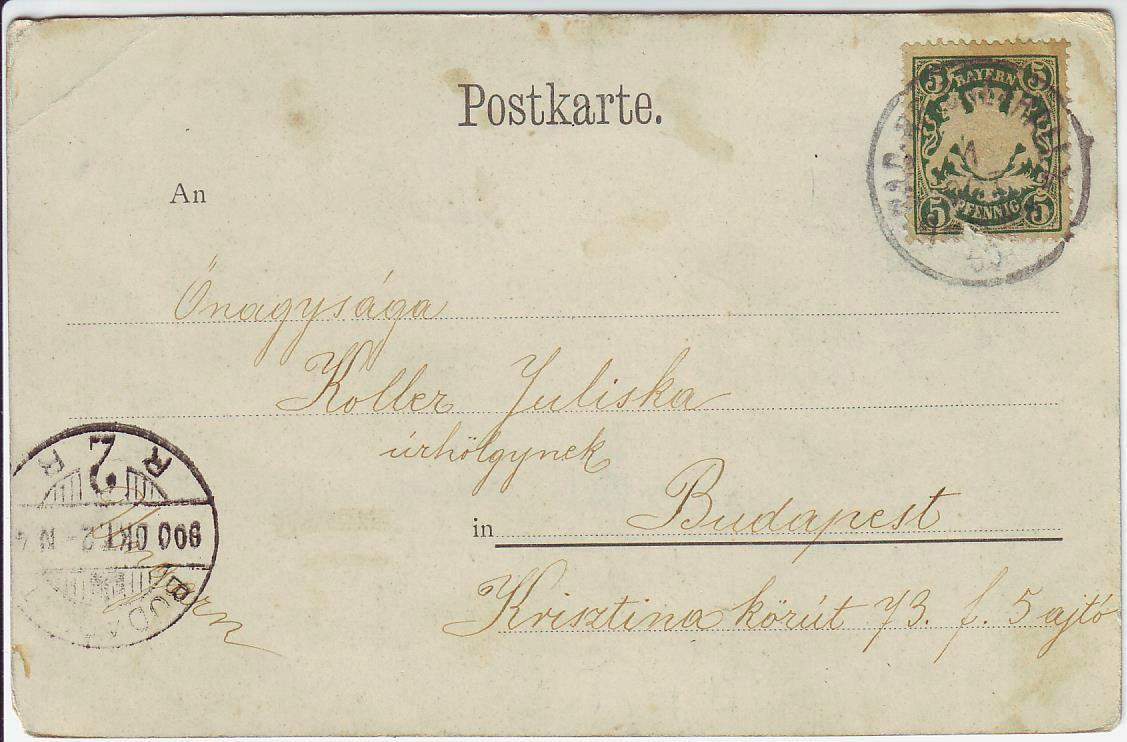 Postkarte.
5 BAYERN 5
5 PFENNIG 5
An
Őnagysága
Koller Juliska
úrhölgynek
in Budapest
Krisztina körút 73. f. 5 ajtó
2
R R
900 OKT. 2 - N 4
BUDA